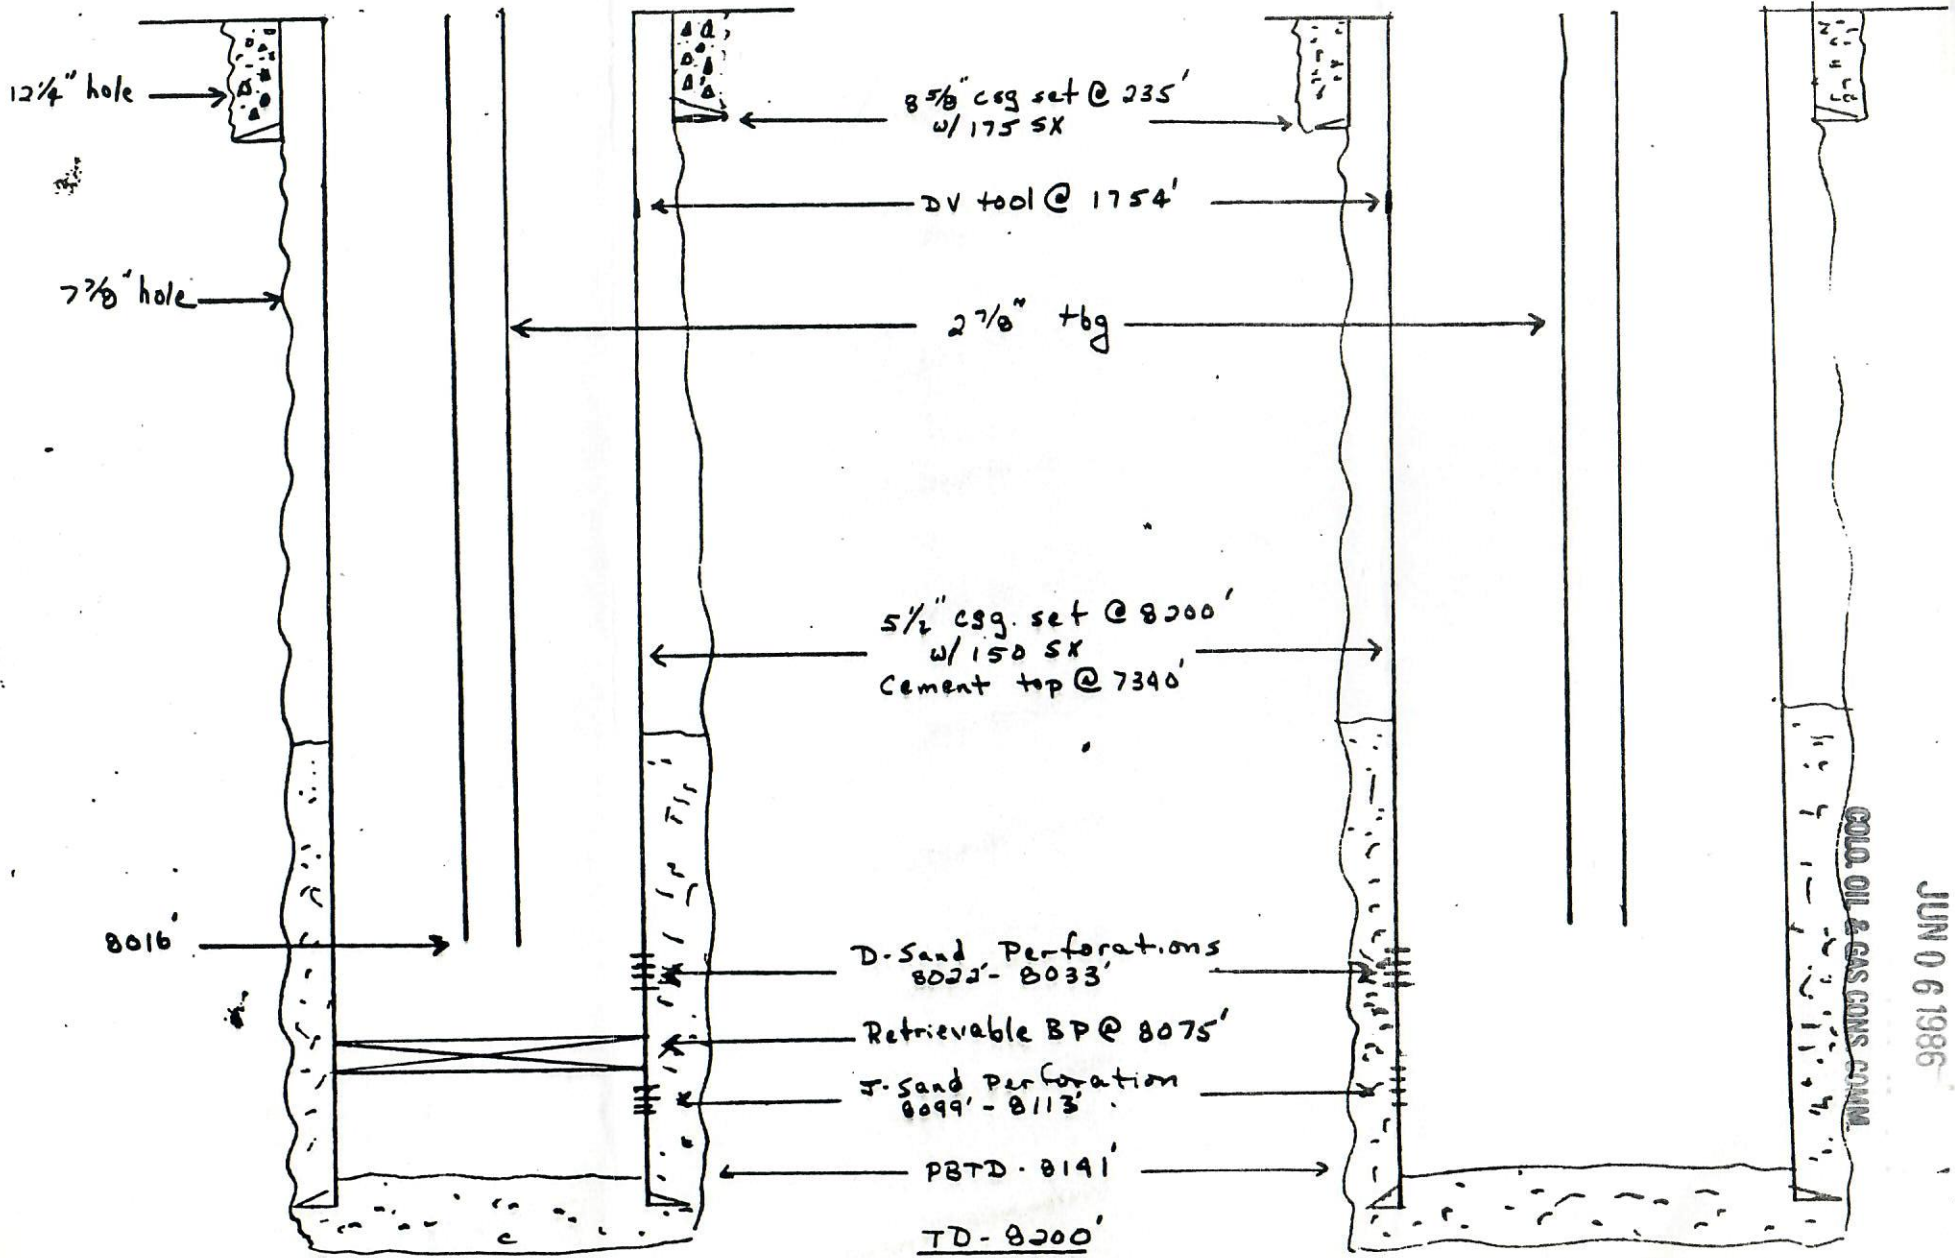 12 1/4" hole
8 5/8" csg set @ 235'
w/ 175 SX
DV tool @ 1754'
7 7/8" hole
2 7/8" tbg
5 1/2" csg. set @ 8200'
w/ 150 SX
Cement top @ 7340'
8016'
D-Sand Perforations
8022'- 8033'
Retrievable BP @ 8075'
J-Sand Perforation
8099' - 8113'
PBTD - 8141'
TD - 8200'
COLO. OIL & GAS CONS. COMM.
JUN 06 1986